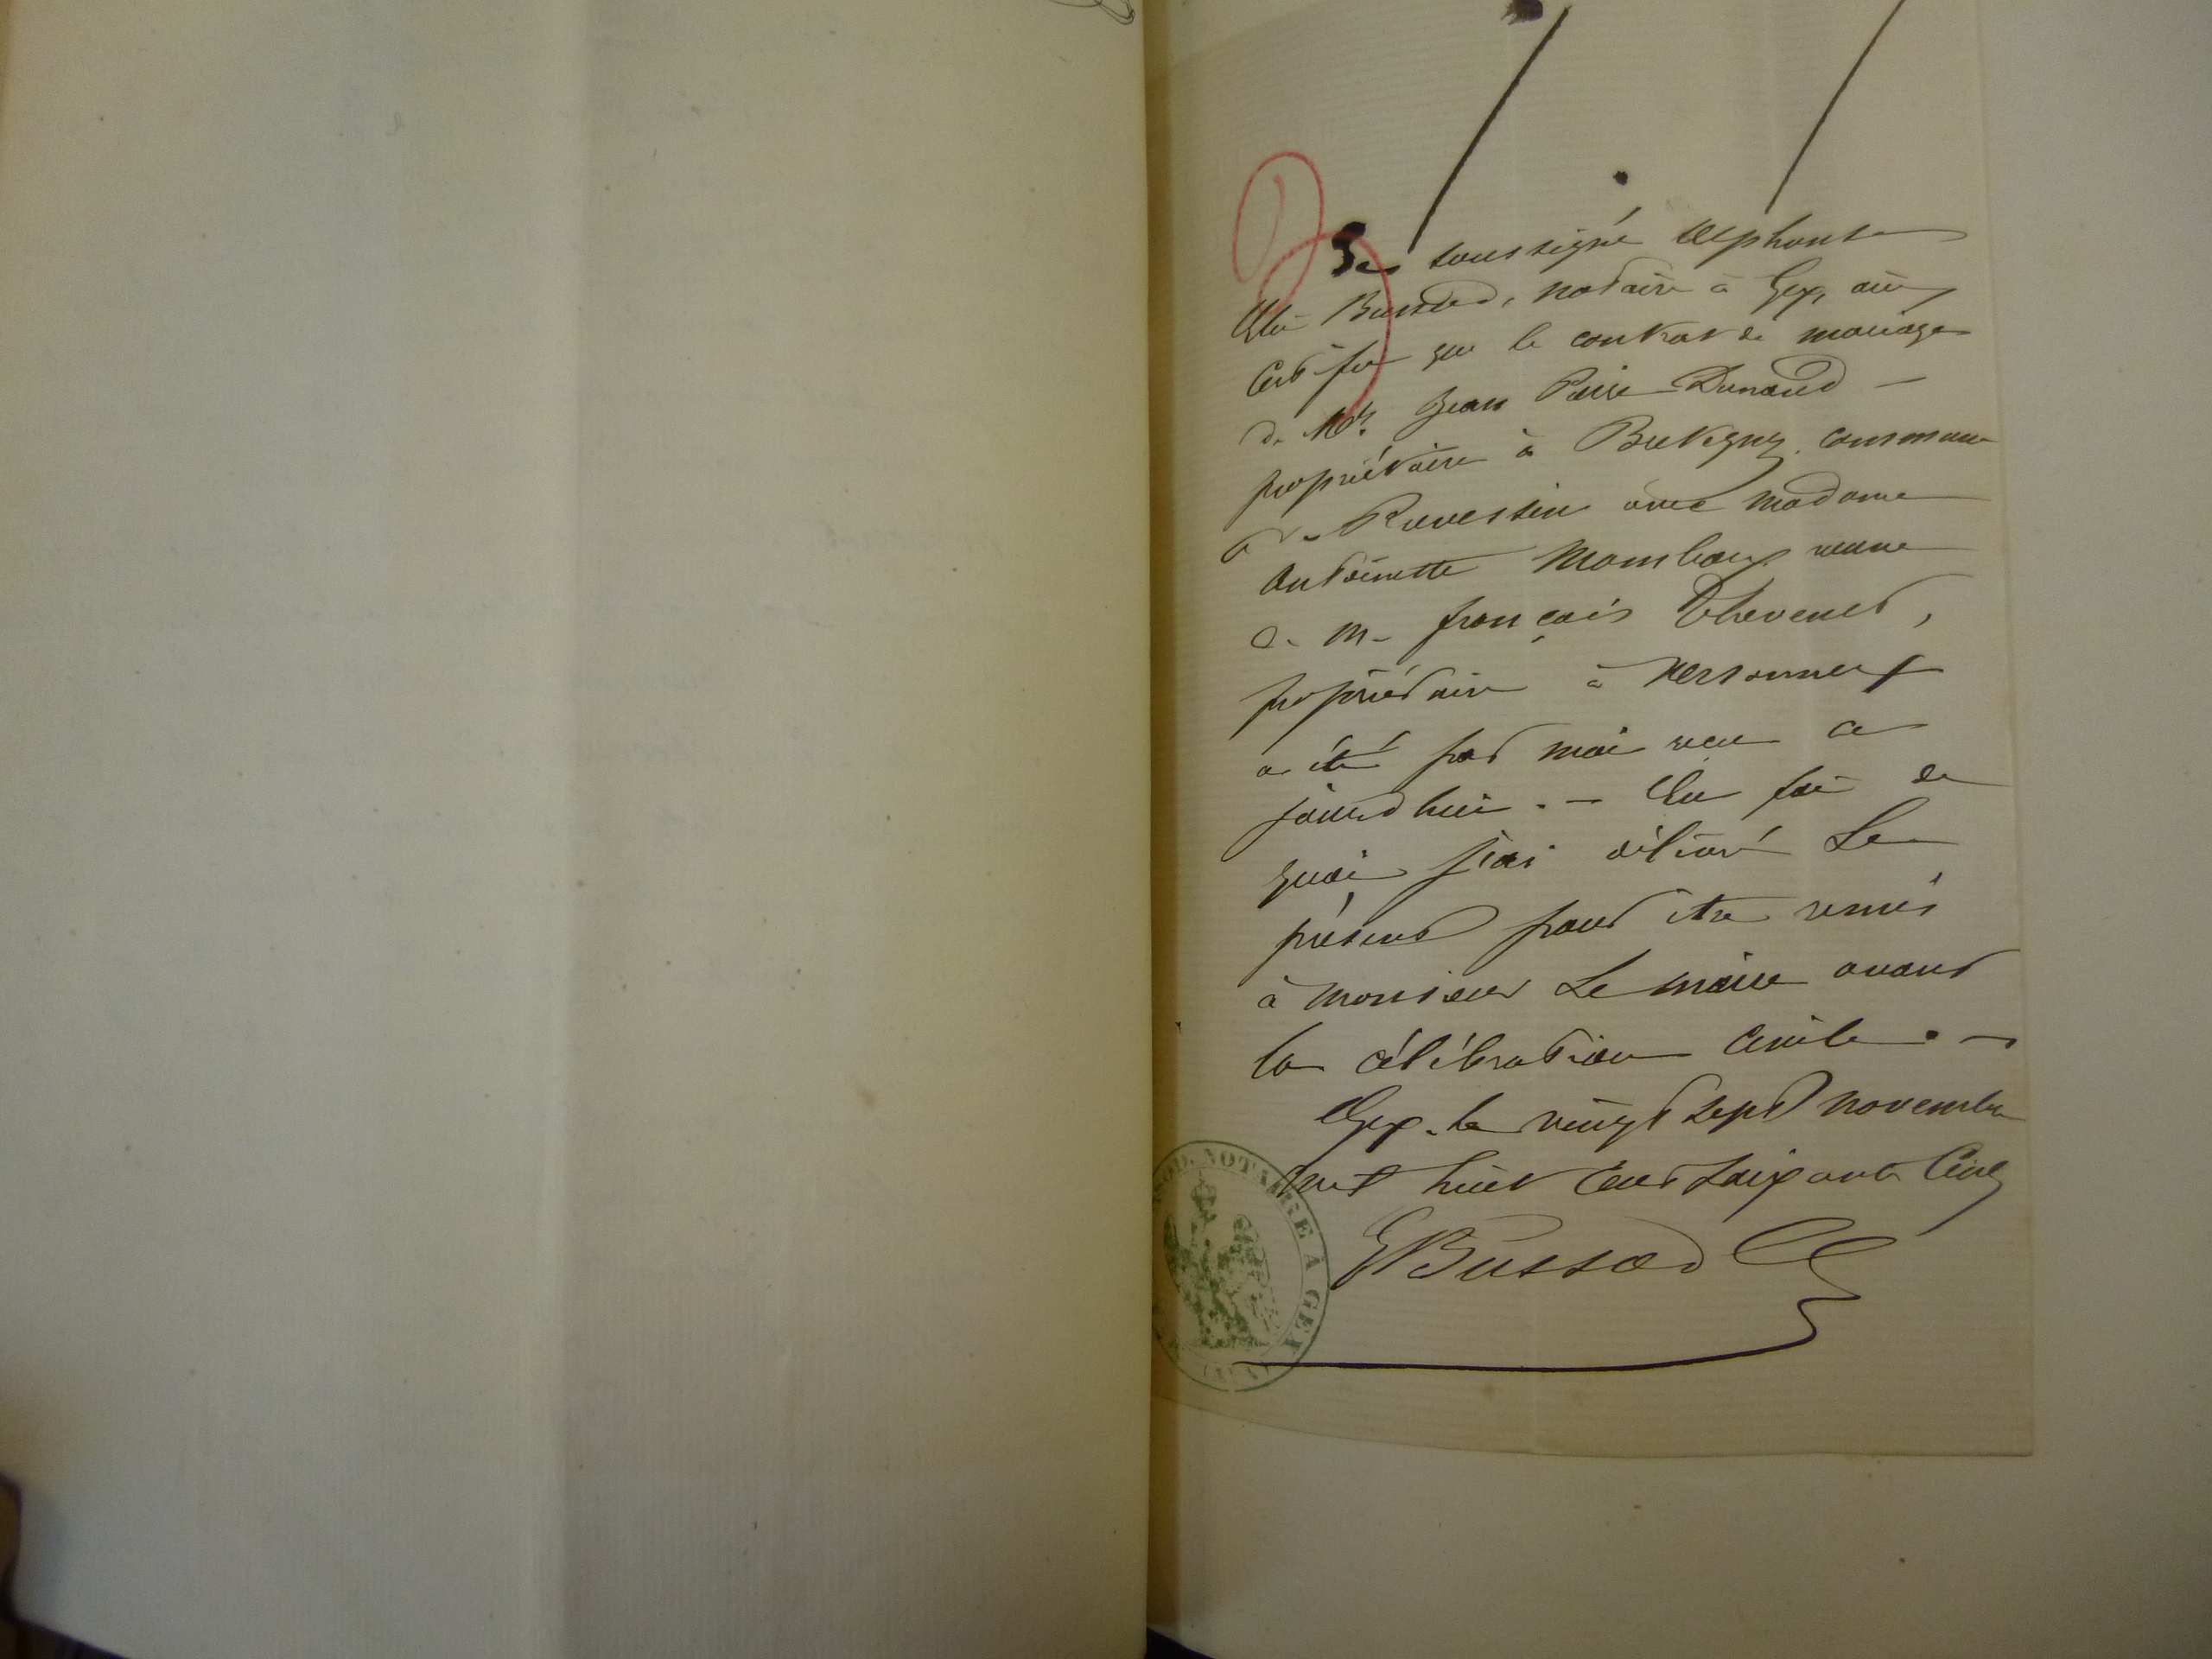 Je soussigné Alphonse
Elie Bussod, notaire à Gex, ain,
Certifie que le contrat de mariage
de Mr. Jean Pierre Dunand —
propriétaire à Bretigny, commune
de Prevessin avec madame
Antoinette Mombaux veuve
de M. françois Thevenet,
propriétaire à Versonnex
a été par moi reçu ce
jourd'hui. — En foi de
quoi j'ai délivré Le
présent pour être remis
à Monsieur Le maire avant
la célébration civile. —
Gex, le vingt sept novembre
mil huit cent soixante Cinq
EBussod
NOTAIRE À GEX